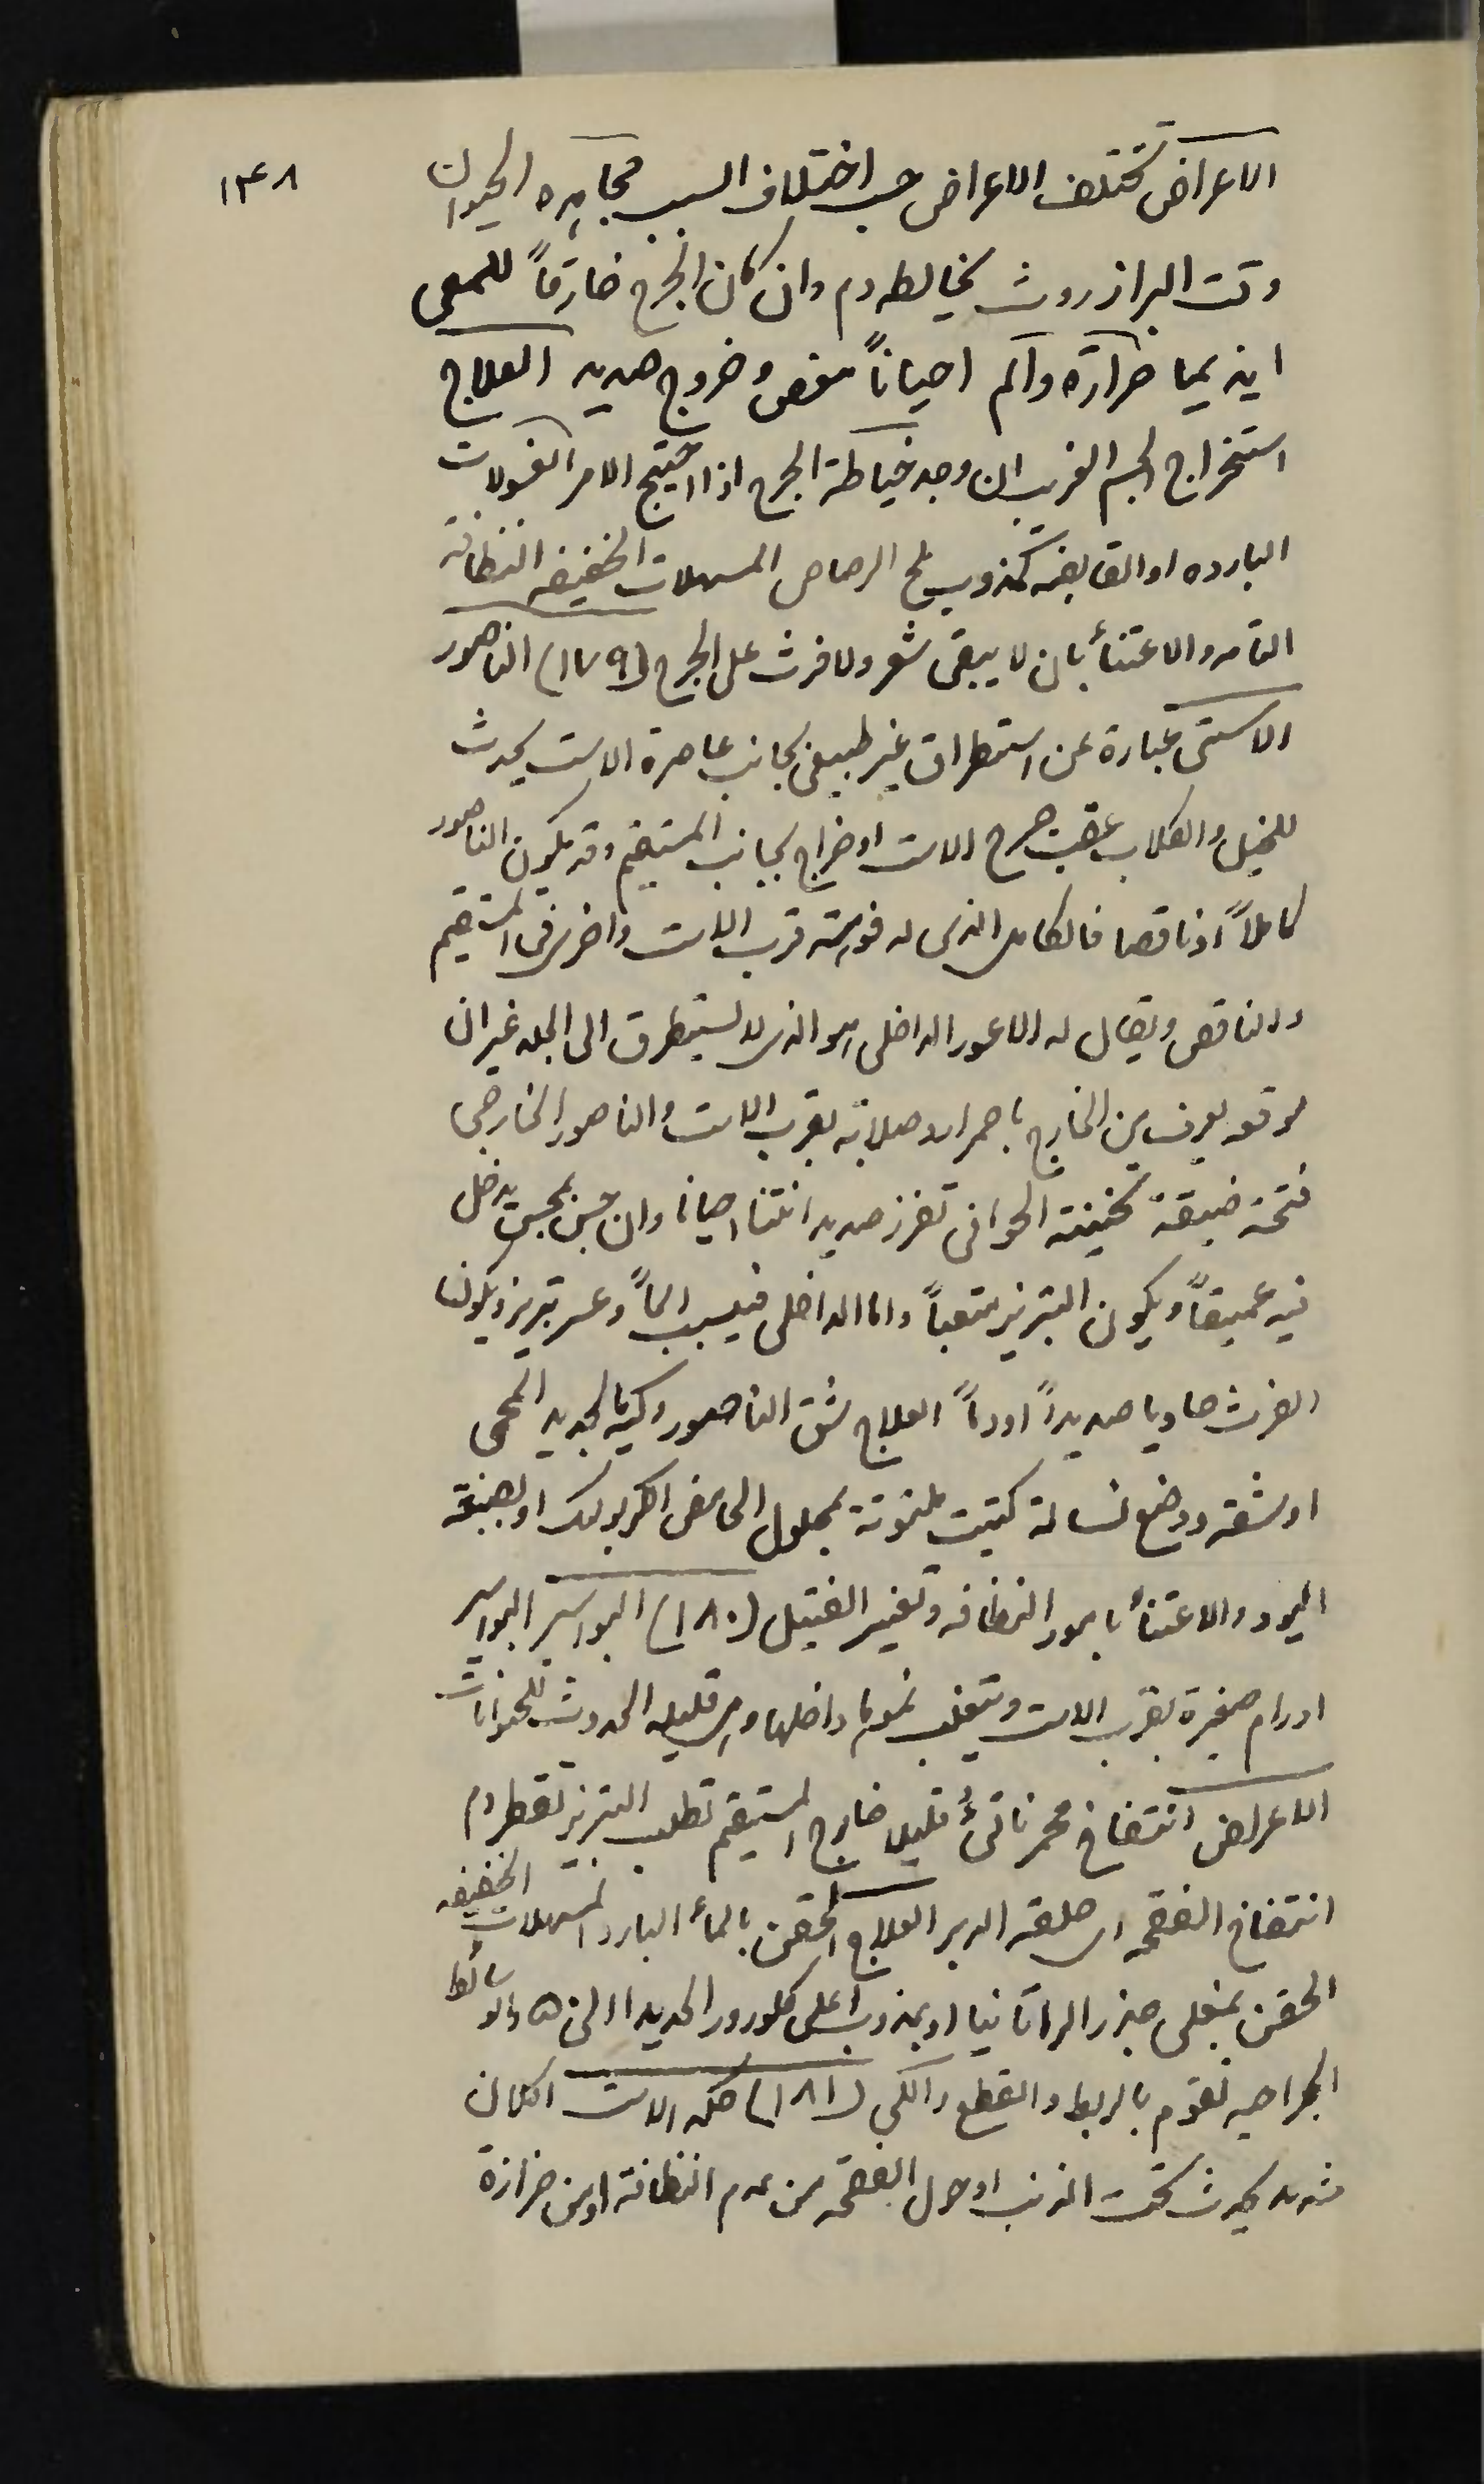 ١٣٤٨
الاعراض تختلف الاعراض حسب اختلاف السبب الحيوان
وقت البراز روث يخالطه دم وان كان الجرح خارقاً للمعى
حرارة والم احياناً مغص وخروج صديد العلاج
استخراج الجسم الغريب ان وجد خياطة الجرح اذا احتيج الامر الغسولات
البارده او القابضه كمذوب ملح الرصاص المسهلات الخفيفه النظافة
التامه والاعتنأ بان لا يبقى شعر ولا فرث على الجرح (١٧٩) الناصور
الاستى عبارة عن استطراق غير طبيعى بجانب عاصرة الاست يحدث
للخيل والكلاب عقب جرح الاست او خراج بجانب المستقيم وقد يكون الناصور
كاملاً او ناقصا فالكامل الذى له فوهة قرب الاست واخرى فى المستقيم
والناقص ويقال له الاعور الداخلى هو الذى لا يستطرق الى الجلد غير ان
موقعه يعرف من الخارج باحمرار وصلابة بقرب الاست والناصور الخارجى
فتحة ضيقة ثخينة الحوافى تفرز صديدا نتنا احيانا وان جس بمجس يدخل
فيه عميقاً ويكون التبريز متعباً واما الداخلى فيسبب الماً وعسر تبريز ويكون
الفرث حاويا صديداً او دماً العلاج شق الناصور وكيه بالحديد المحمى
او شقه ووضع نسالة كتيت ملتوتة بمحلول الحامض الكربوليك او بصبغة
اليود والاعتنأ بامور النظافه وتغيير الفتيل (١٨٠) البواسير البواسير
اورام صغيرة بقرب الاست ويتغلب نموها داخلها وهى قليلة الحدوث للحيوانات
الاعراض انتفاخ محمر ناتئ قليلا خارج المستقيم تطلب التبريز تقطر دم
انتفاخ الفقحه اى حلقة الدبر العلاج الحقن بالمأ البارد المسهلات الخفيفه
الحقن بمغلى جذر الراتانيا او بمذوب اعلى كلورور الحديد والوسائط
الجراحيه تقوم بالربط والقطع والكى (١٨١) حكه الاست اكلان
شديد يحدث تحت الذنب او حول الفقحه من عدم النظافة او من خزازة